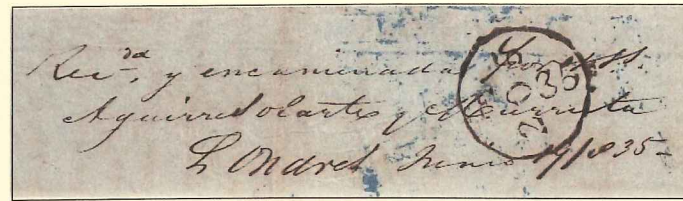 Recda. y encaminada por SS.
Aguirre Solartes y Murrieta
Londres Junio 19/835